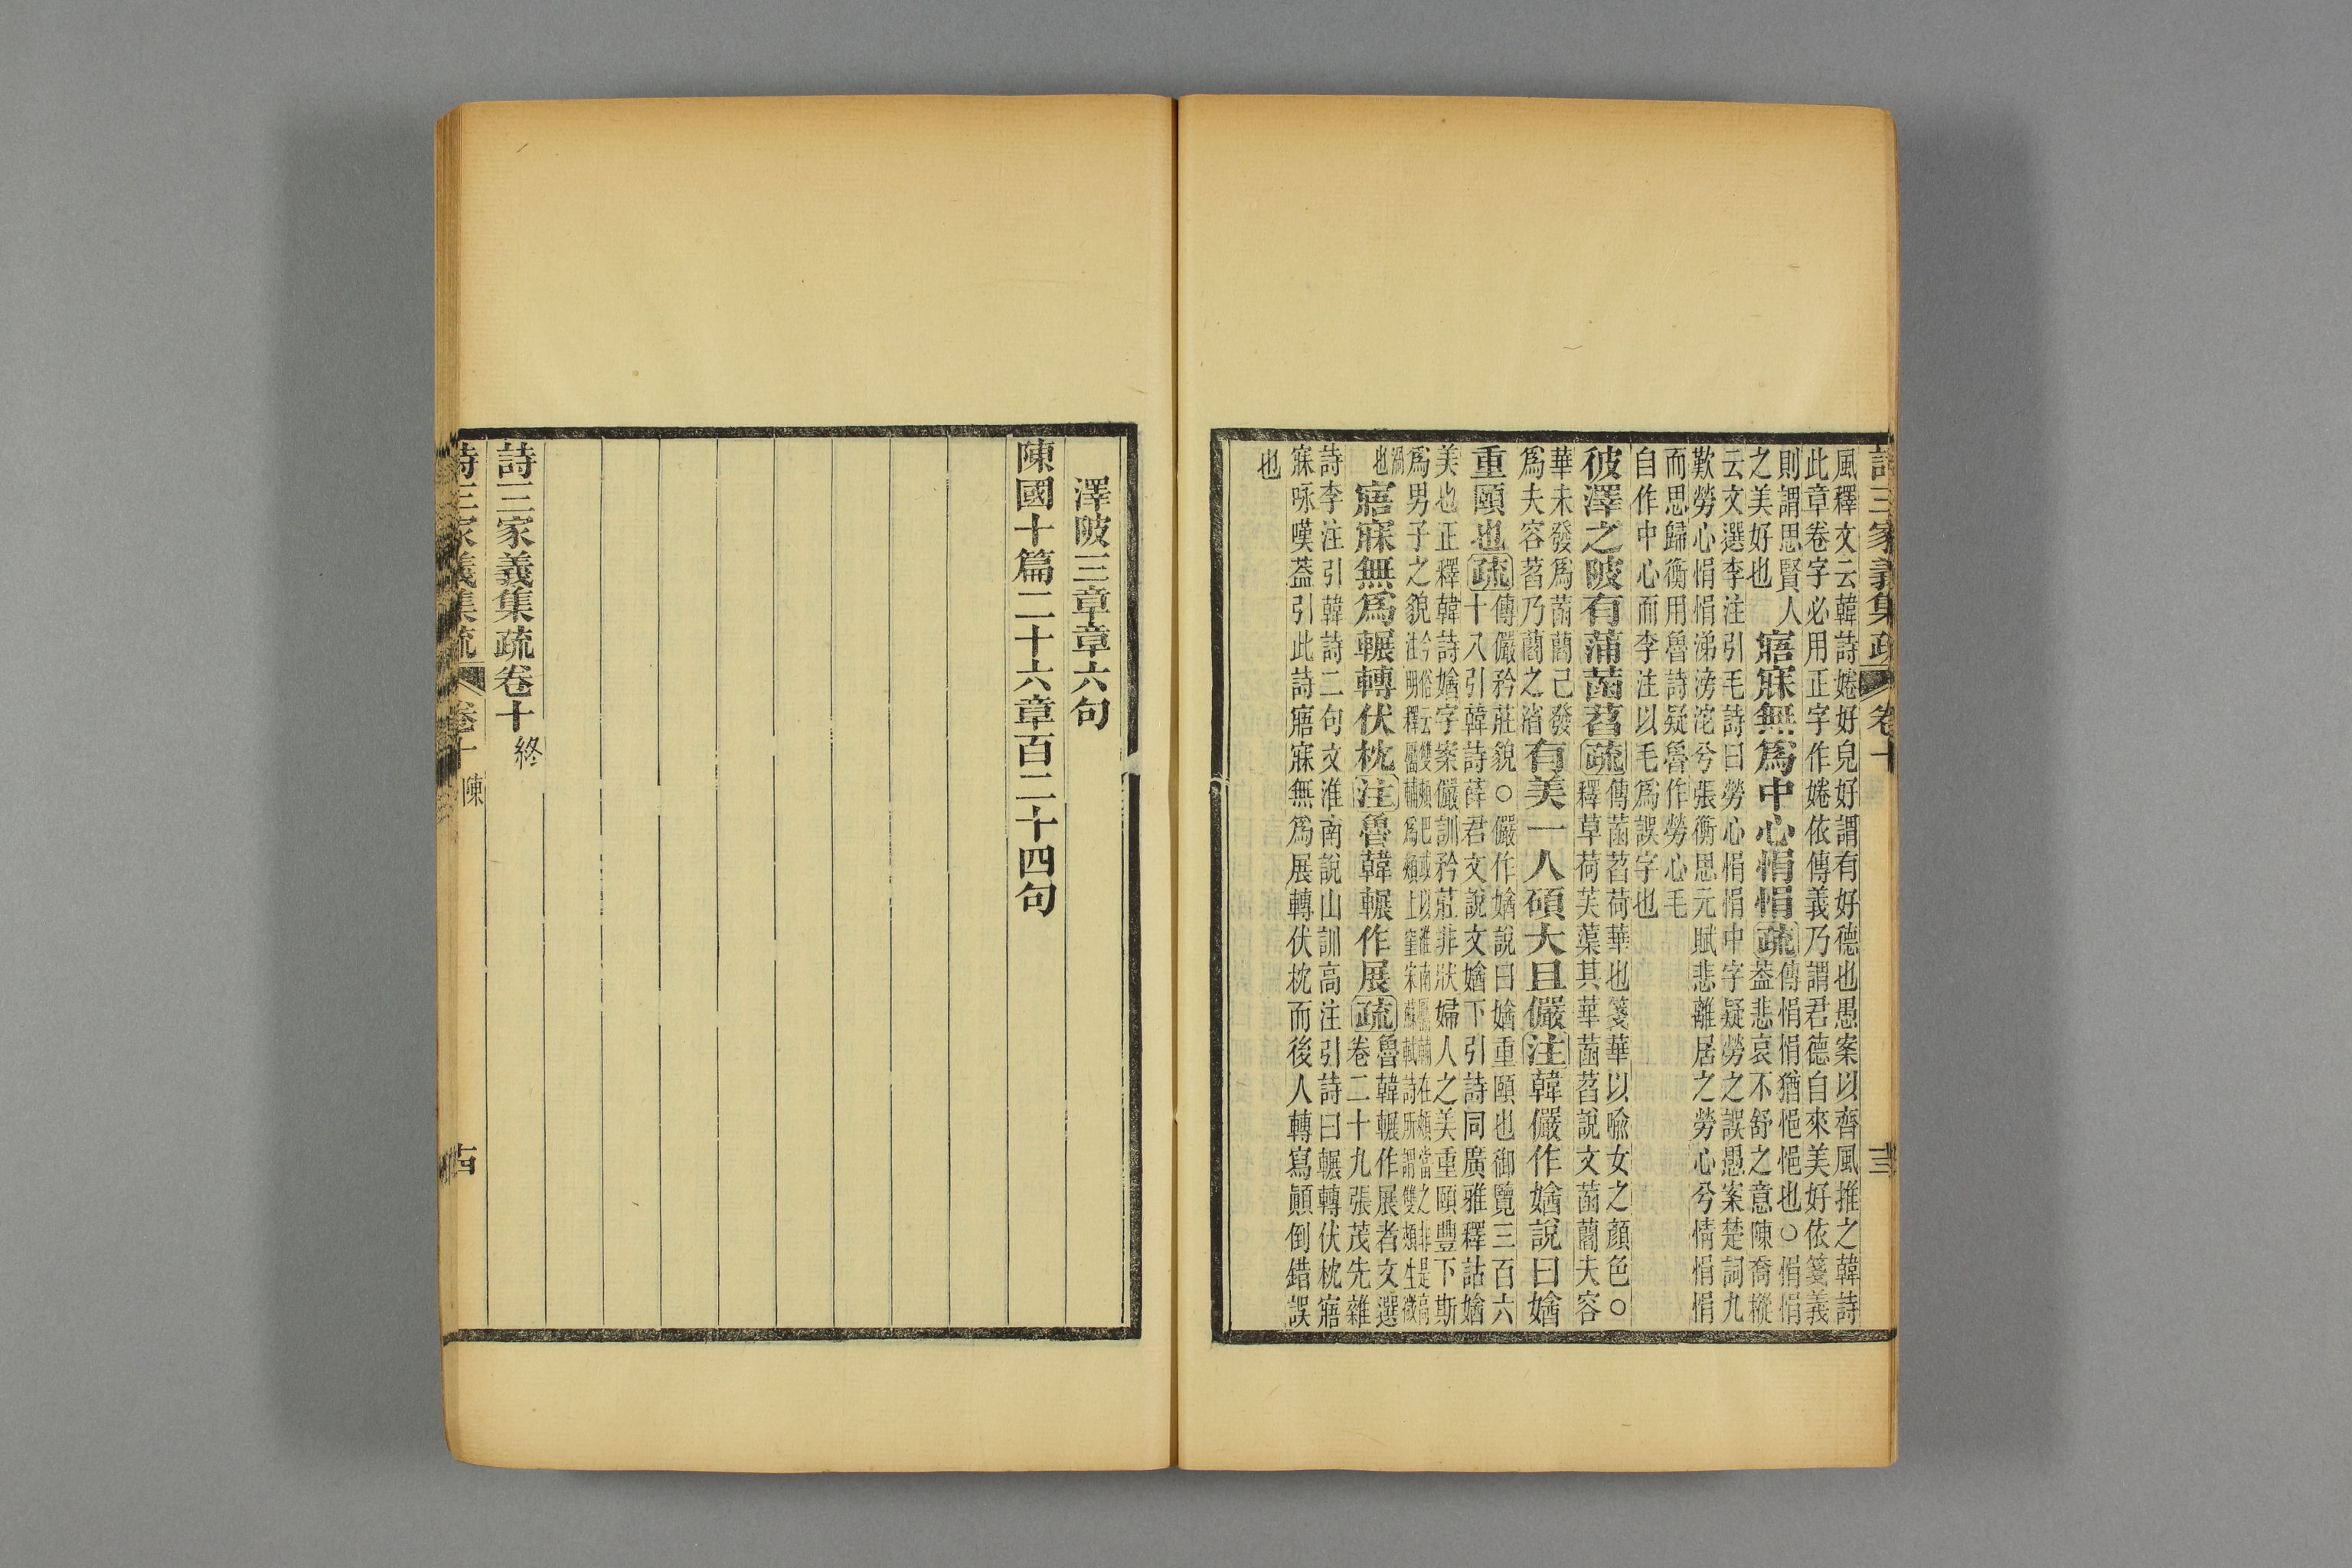 詩三家義集疏 卷十 十三
風釋文云韓詩婘好皃好謂有好德也愚案以齊風推之韓詩
此章卷字必用正字作婘依傳義乃謂君德自來美好依箋義
則謂思賢人
之美好也
寤寐無爲中心悁悁疏
傳悁悁猶悒悒也○悁悁
蓋悲哀不舒之意陳喬樅
云文選李注引毛詩曰勞心悁悁中字疑勞之誤愚案楚詞九
歎勞心悁悁涕滂沱兮張衡思元賦悲離居之勞心兮情悁悁
而思歸衡用魯詩疑魯作勞心毛
自作中心而李注以毛爲誤字也
彼澤之陂有蒲菡萏疏
傳菡萏荷華也箋華以喻女之顏色○
釋草荷芙蕖其華菡萏說文菡藺夫容
華未發爲菡藺已發
爲夫容萏乃藺之渻
有美一人碩大且儼注韓儼作㜝說曰㜝
重頤也疏
傳儼矜莊貌○儼作㜝說曰㜝重頤也御覽三百六
十八引韓詩薛君文說文㜝下引詩同廣雅釋詁㜝
美也正釋韓詩㜝字案儼訓矜莊非狀婦人之美重頤豐下斯
爲男子之貌
今俗云雙頰肥或以淮南靨輔在頰當之非是高
注明釋靨輔爲頰上窐宋蘇軾詩所謂雙頰生微
渦
也
寤寐無爲輾轉伏枕注魯韓輾作展疏
魯韓輾作展者文選
卷二十九張茂先雜
詩李注引韓詩二句文淮南說山訓高注引詩曰輾轉伏枕寤
寐咏嘆蓋引此詩寤寐無爲展轉伏枕而後人轉寫顚倒錯誤
也
澤陂三章章六句
陳國十篇二十六章百二十四句
詩三家義集疏卷十終
詩三家義集疏 卷十 陳 十四